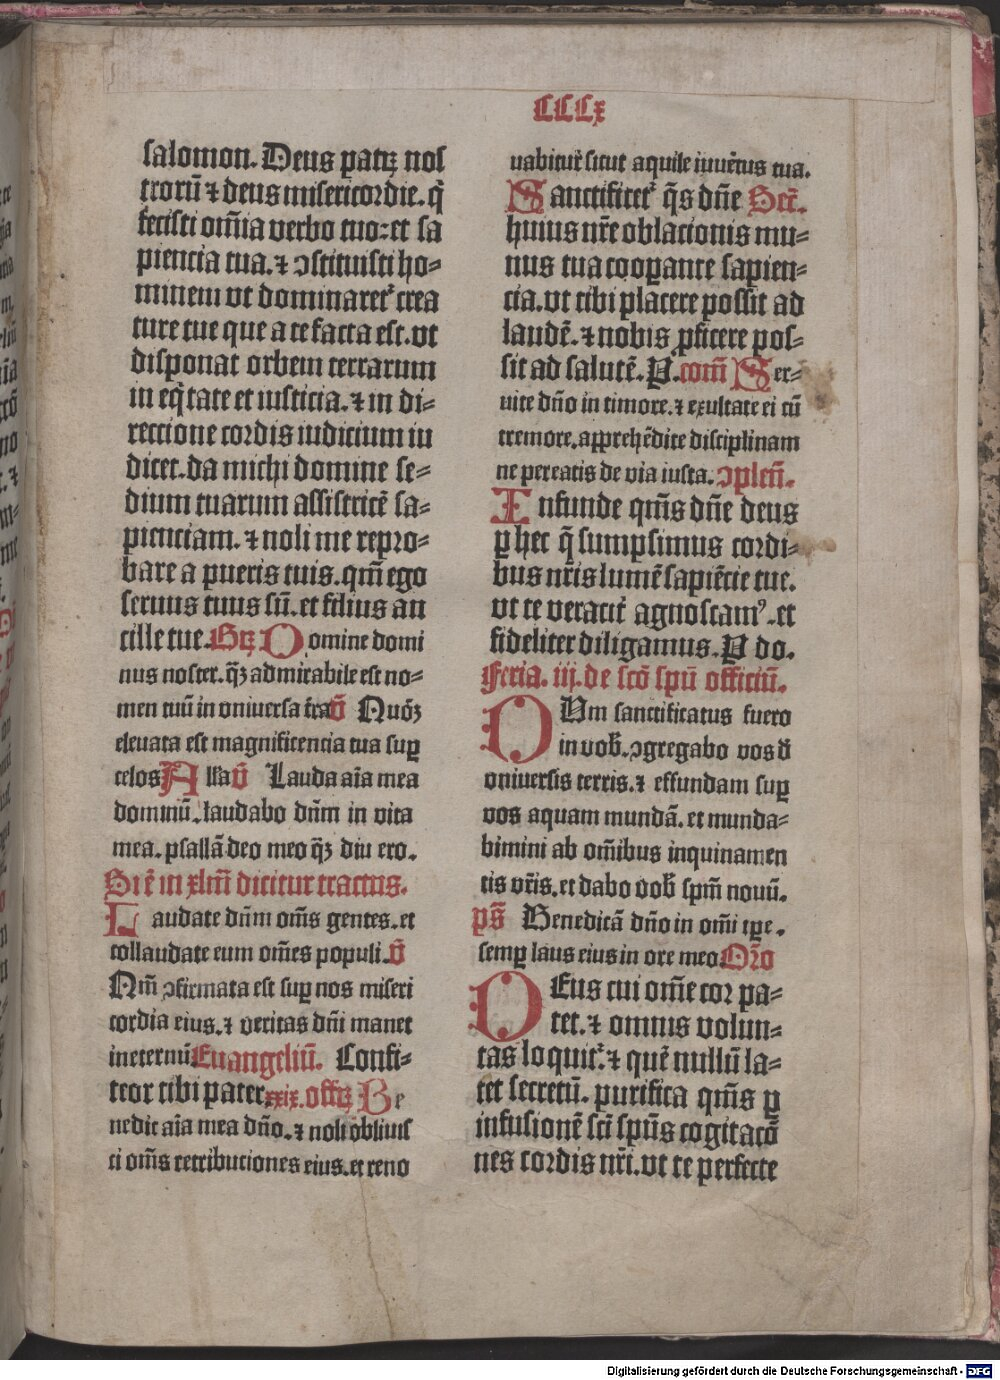 CCCx
salomon. Deus patꝝ nos
trorū ⁊ deus misericordie. q̄
fecisti om̄ia verbo tuo: et sa
piencia tua. ⁊ ꝯstituisti ho⸗
minem vt dominaret᷑ crea
ture tue que a te facta est. vt
disponat orbem terrarum
in eq̇tate et iusticia. ⁊ in di⸗
reccione cordis iudicium iu
dicet. da michi domine se⸗
dium tuarum assistricē sa⸗
pienciam. ⁊ noli me repro⸗
bare a pueris tuis. qm̄ ego
seruus tuus sū. et filius an
cille tue. Gꝝ Domine domi
nus noster. q̄ꝫ admirabile est no⸗
men tuū in vniuersa t̄ra v̄ Nuōꝫ
eleuata est magnificencia tua suꝑ
celos Alla v̄ Lauda aīa mea
dominū. laudabo dn̄m in vita
mea. psallā deo meo q̄ꝫ diu ero.
Siē in xlm̄ dicitur tractus.
Laudate dn̄m om̄s gentes. et
collaudate eum om̄es populi. v̄
Nm̄ ꝯfirmata est suꝑ nos miseri
cordia eius. ⁊ veritas dn̄i manet
in eternū Euangeliū. Confi⸗
teor tibi pater. xxix. offꝝ Be
nedic aīa mea dn̄o. ⁊ noli obliuis
ci om̄s retribuciones eius. et reno
uabitur̄ sicut aquile iuuētus tua.
Sanctificet᷑ q̄s dn̄e Secr̄.
huius nr̄e oblacionis mu⸗
nus tua cooꝑante sapien⸗
cia. vt tibi placere possit ad
laudē. ⁊ nobis ꝓficere pos⸗
sit ad salutē. P. com̄ Ser⸗
uite dn̄o in timore. ⁊ exultate ei cū
tremore. apprehēdite disciplinam
ne pereatis de via iusta. ꝯplen̄.
Infunde qm̄s dn̄e deus
ꝑ hec q̄ sumpsimus cordi⸗
bus nr̄is lumē sapiēcie tue.
vt te veracit̄ agnoscamꝰ. et
fideliter diligamus. P do.
Feria. iij. de sco̅ spū officiū.
Dum sanctificatus fuero
in vob̄. ꝯgregabo vos d̄
vniuersis terris. ⁊ effundam suꝑ
vos aquam mundā. et munda⸗
bimini ab om̄ibus inquinamen
tis vr̄is. et dabo vob̄ spm̄ nouū.
ps̄ Benedicā dn̄o in om̄i tꝑe.
semꝑ laus eius in ore meo Or̄o
Deus cui om̄e cor pa⸗
tet. ⁊ omnis volun⸗
tas loquit᷑. ⁊ quē nullū la⸗
tet secretū. purifica qm̄s ꝑ
infusionē sc̄i spūs cogitacō
nes cordis nr̄i. vt te perfecte
Digitalisierung gefördert durch die Deutsche Forschungsgemeinschaft - DFG